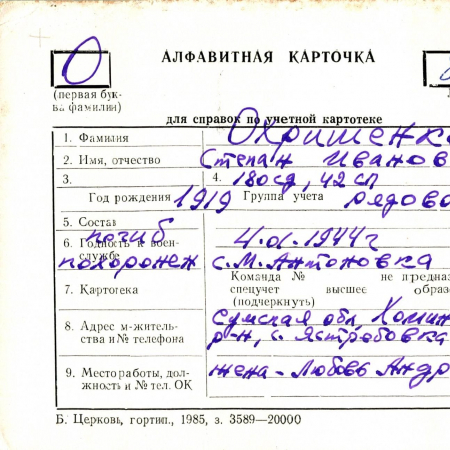 О
АЛФАВИТНАЯ КАРТОЧКА
(первая бук-
ва фамилии)
для справок по учетной картотеке
1. Фамилия Охрименк
2. Имя, отчество Степан Иванов
3. 4. 180 сд, 42 сп
Год рождения 1919 Группа учета рядово
5. Состав
погиб 4.01.1944г
6. Годность к воен-
службе
похоронен с. М. Антоновка
Команда № не предназ
7. Картотека спецучет высшее образ
(подчеркнуть)
Сумская обл,
8. Адрес м-житель- р-н, с. Ястребовка
ства и № телефона
9. Место работы, дол- жена - Любовь Андр
жность и № тел. ОК
Б. Церковь, гортип., 1985, з. 3589—20000